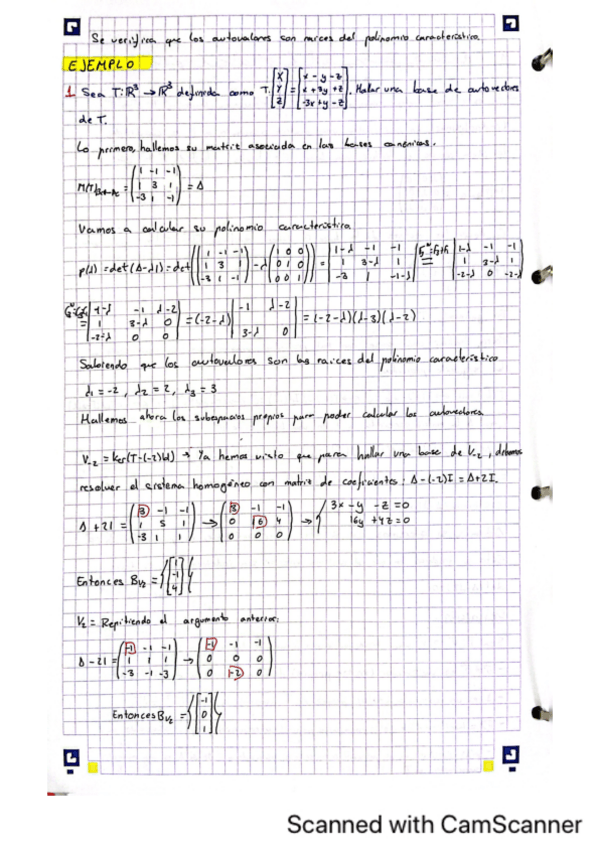 Se verifica que los autovalores son raíces del polinomio característico.
EJEMPLO
1 Sea T: ℝ³ → ℝ³ definida como T [x y z] = [x - y - z, x + 3y + z, -3x + y - z]. Hallar una base de autovectores
de T.
Lo primero, hallemos su matriz asociada en las bases canónicas.
= (1 -1 -1; 1 3 1; -3 1 -1) = A
Vamos a calcular su polinomio característico
p(λ) = det(A - λI) = det((1 -1 -1; 1 3 1; -3 1 -1) - λ(1 0 0; 0 1 0; 0 0 1)) = |1-λ -1 -1; 1 3-λ 1; -3 1 -1-λ| = |1-λ -1 -1; 1 3-λ 1; -2-λ 0 -2-λ|
= |1-λ -1 λ-2; 1 3-λ 0; -2-λ 0 0| = (-2-λ) |-1 λ-2; 3-λ 0| = (-2-λ)(λ-3)(λ-2)
Sabiendo que los autovalores son las raíces del polinomio característico
λ₁ = -2, λ₂ = 2, λ₃ = 3
Hallemos ahora los subespacios propios para poder calcular los autovectores
V₋₂ = Ker(T-(-2)Id) → Ya hemos visto que para hallar una base de V₋₂, debemos
resolver el sistema homogéneo con matriz de coeficientes: A - (-2)I = A + 2I.
A + 2I = (3 -1 -1; 1 5 1; -3 1 1) → (3 -1 -1; 0 16 4; 0 0 0) → { 3x - y - z = 0; 16y + 4z = 0
Entonces B_V₂ = {[1 -1 4]}
V₂ = Repitiendo el argumento anterior:
A - 2I = (-1 -1 -1; 1 1 1; -3 -1 -3) → (-1 -1 -1; 0 0 0; 0 -2 0)
Entonces B_V₂ = {[-1 0 1]}
Scanned with CamScanner